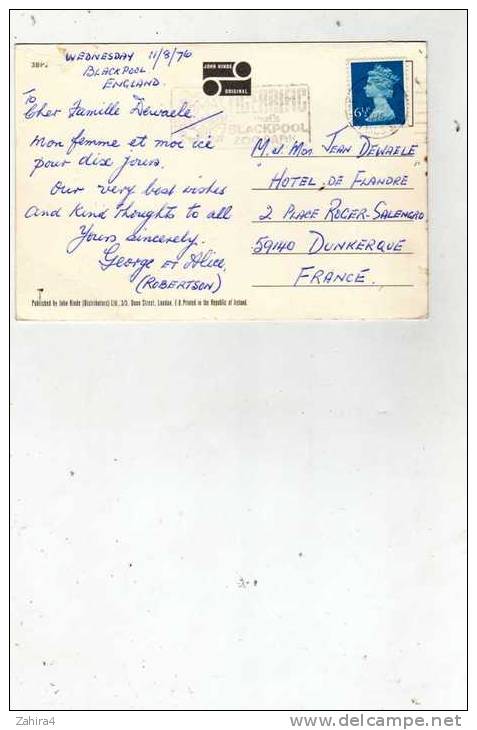 WEDNESDAY 11/8/76
BLACKPOOL
ENGLAND.
JOHN HINDE
ORIGINAL
6½P
that's
BLACKPOOL
ZOO PARK
To
Cher Famille Dewaele.
Mon femme et moi ici
pour dix jours.
Our very best wishes
and Kind Thoughts to all
Yours Sincerely.
George et Alice.
(ROBERTSON)
M. et Mm. JEAN DEWAELE
HOTEL DE FLANDRE
2 PLACE ROGER-SALENGRO
59140 DUNKERQUE
FRANCE.
Published by John Hinde (Distributors) Ltd., 3/5, Dunn Street, London, E 8. Printed in the Republic of Ireland.
Zahira4
delcampe.net